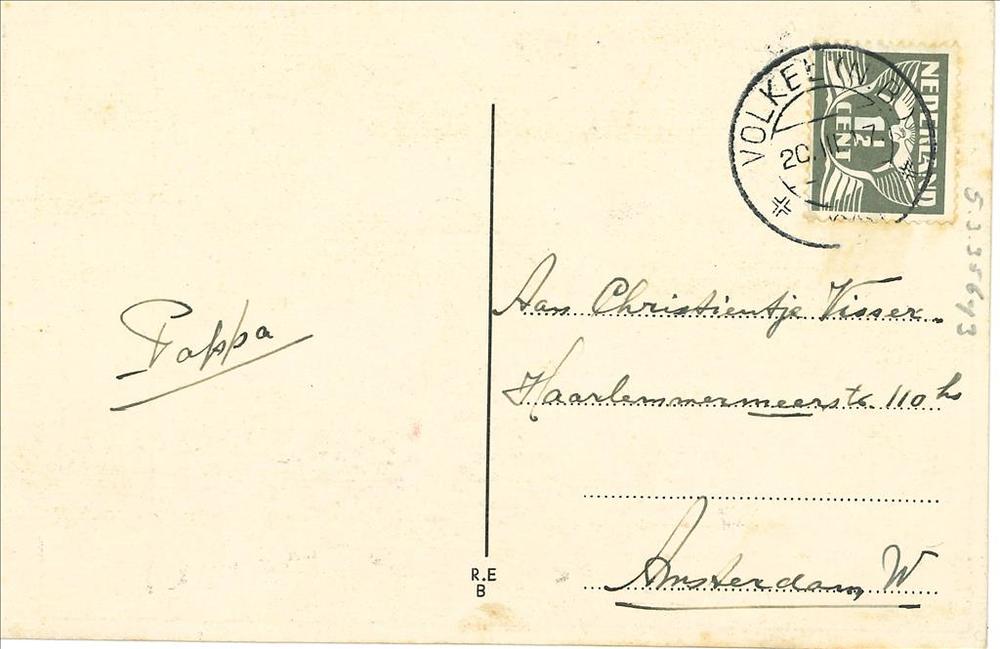 VOLKEL (N.B
20.III
NEDERLAND
1½
CENT
Pappa
Aan Christientje Visser.
Haarlemmermeerstr. 110 hs
Amsterdam W
R.E
B